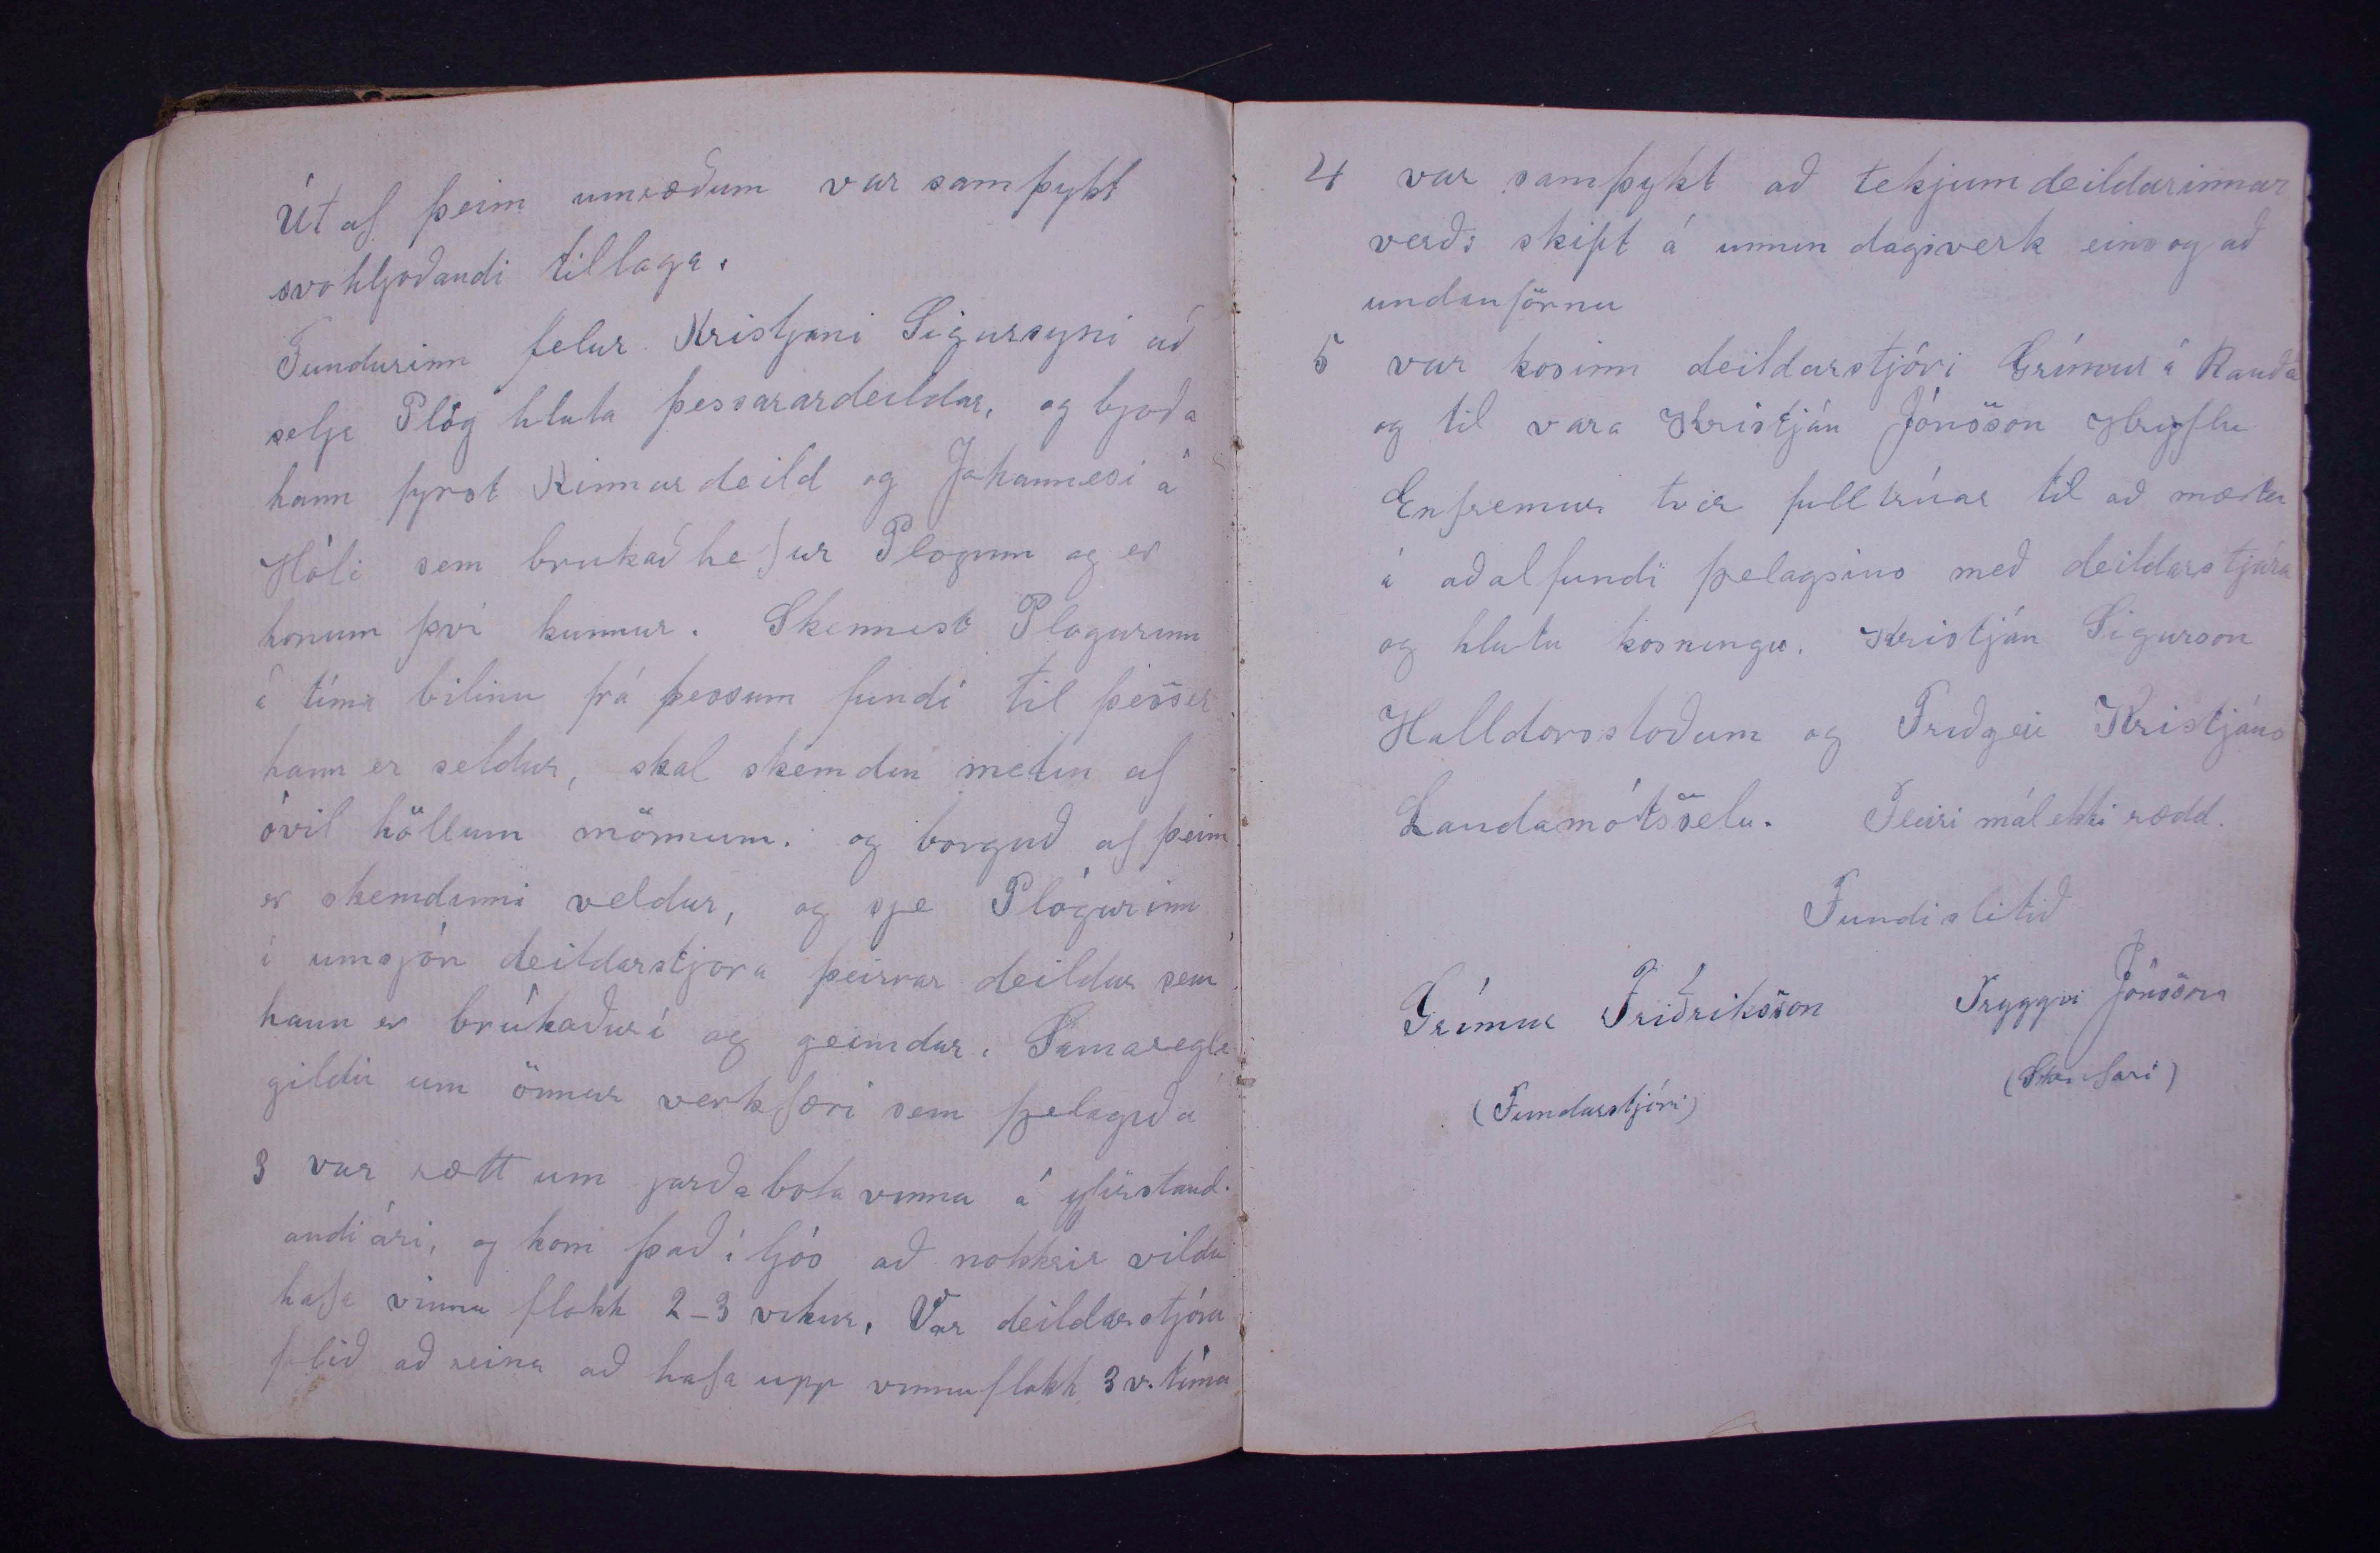 Út af þeim umræðum var samþykt
svohljoðandi tillaga.
Fundurinn felur Kristjani Sigursyni að
selja Plóg hluta þessarardeildar, og bjoða
hann fyrst Kinnardeild og Johannesi á
Hóli sem brukað hefur Plogum og er
honum því kunnur. Skemmist Plogurinn
á tíma bilinu frá þessum fundi til þess er
hann er seldur, skal skemdin metin af
óvil höllum mönnum. og borguð af þeim
er skemdinni veldur, og sje Plógurinn
í umsjón deildarstjora þeirrar deildar sem
hann er brúkaður í og geimdur. Sama regla
gildir um önnur verkfæri sem fjelagið á
3 var rætt um jarðabota vinna á yfirstand-
andi ári, og kom það í ljós að nokkrir vildu
hafa vinnu flokk 2-3 vikur. Var deildarstjóra
falið að reina að hafa upp vinnuflokk 3 v. tíma
4 var samþykt að tekjum deildarinnar
verði skipt á unnin dagsverk eins og að
undanförnu
5 var kosinn deildarstjóri Grímur á Rauðá
og til vara Kristján Jónsson Hryflu
Enfremur tveir fulltrúar til að mæta
á aðalfundi fjelagsins með deildarstjóra
og hlutu kosningu. Kristján Sigurson
Halldorsstoðum og Friðgeir Kristjáns
Landamótsselu. Fleiri mál ekki rædd.
Fundi slitið
Grímur Friðriksson Tryggvi Jónsson
(Fundarstjóri) (Skrifari)